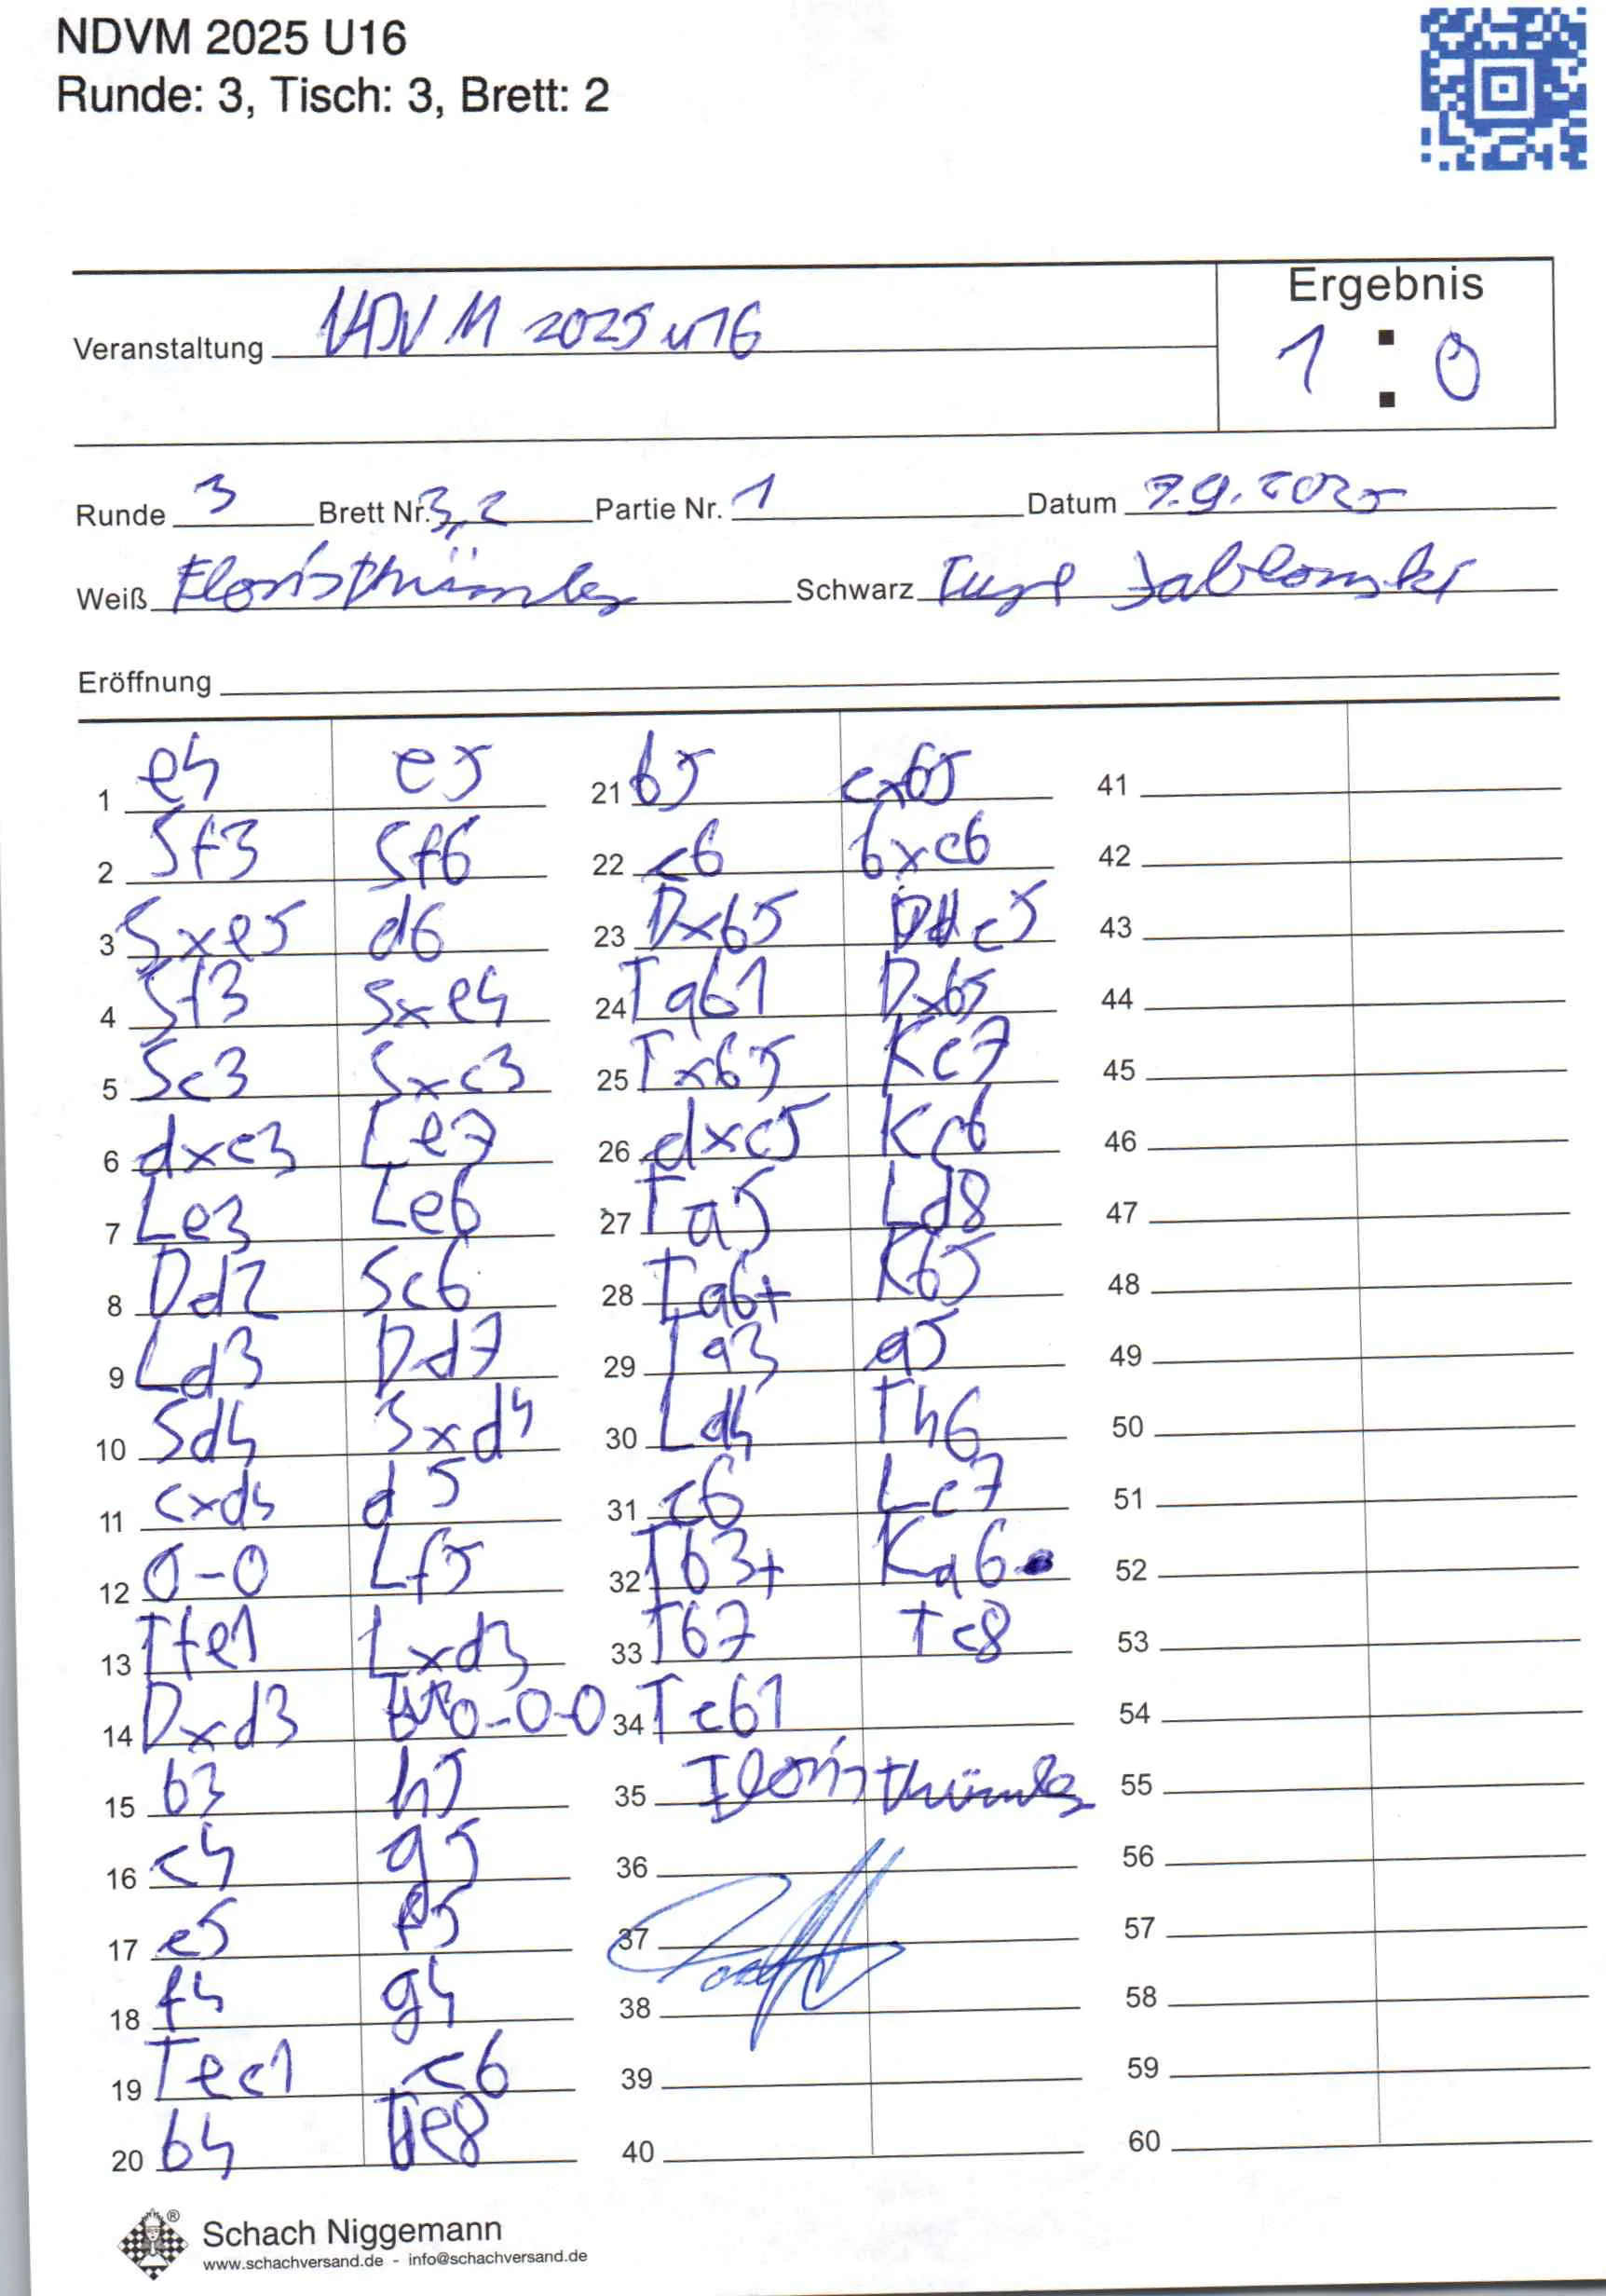 NDVM 2025 U16
Runde: 3, Tisch: 3, Brett: 2
Ergebnis
Veranstaltung NDVM 2025 u16
1 : 0
Runde 3 Brett Nr. 3,2 Partie Nr. 1 Datum 7.9.2025
Weiß Floris Thümler Schwarz Jablonski
Eröffnung
1 e4 e5
2 Sf3 Sf6
3 Sxe5 d6
4 Sf3 Sxe4
5 Sc3 Sxc3
6 dxc3 Le7
7 Le3 Le6
8 Dd2 Sc6
9 Ld3 Dd7
10 Sd4 Sxd4
11 cxd4 d5
12 0-0 Lf5
13 Tfe1 Lxd3
14 Dxd3 0-0-0
15 b3 h5
16 c4 g5
17 c5 f5
18 f4 g4
19 Tec1 c6
20 b4 Tde8
21 b5 cxb5
22 c6 bxc6
23 Dxb5 Dc5
24 Tab1 Dxb5
25 Txb5 Kc7
26 dxc5 Kc6
27 Ta5 Ld8
28 Ta6+ Kb5
29 Ta3 a5
30 Ld4 Th6
31 c6 Lc7
32 Tb3+ Ka6
33 Tb7 Tc8
34 Tcb1
35 Floris Thümler
36
37
38
39
40
41
42
43
44
45
46
47
48
49
50
51
52
53
54
55
56
57
58
59
60
Schach Niggemann
www.schachversand.de - info@schachversand.de